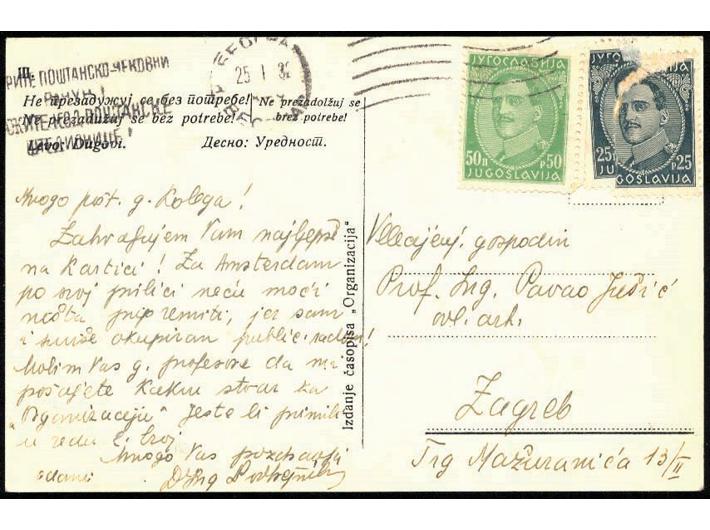 БЕОГРАД
25 I 3
III.
РИТЕ ПОШТАНСКО-ЧЕКОВНИ
РАЧУН!
ПОШТАНСКЕ
ШТЕДИОНИЦЕ!
Не презадужуј се без потребе!
Ne prezadužuj se bez potrebe!
Ne prezadolžuj se
brez potrebe!
Levo: Dugovi. Десно: Уредност.
ЈУГОСЛАВИЈА
50П Р50
JUGOSLAVIJA
ЈУГОСЛАВИЈА
25П Р25
JUGOSLAVIJA
Mnogo pošt. g. Kolega!
Zahvaljujem Vam najlepše
na kartici! Za Amsterdam
po svoj prilici neću moći
ništa pripremiti, jer sam
i suviše okupiran public. radom!
Molim Vas g. profesore da mi
pošaljete kakvu stvar za
"Organizaciju". Jeste li primili
u redu broj
Mnogo Vas pozdravlja
odani Ing
Izdanje časopisa „Organizacija“
Velecijenj. gospodin
Prof. Ing. Pavao Jušić
ovl. arh.
Zagreb
Trg Mažuranića 13/II